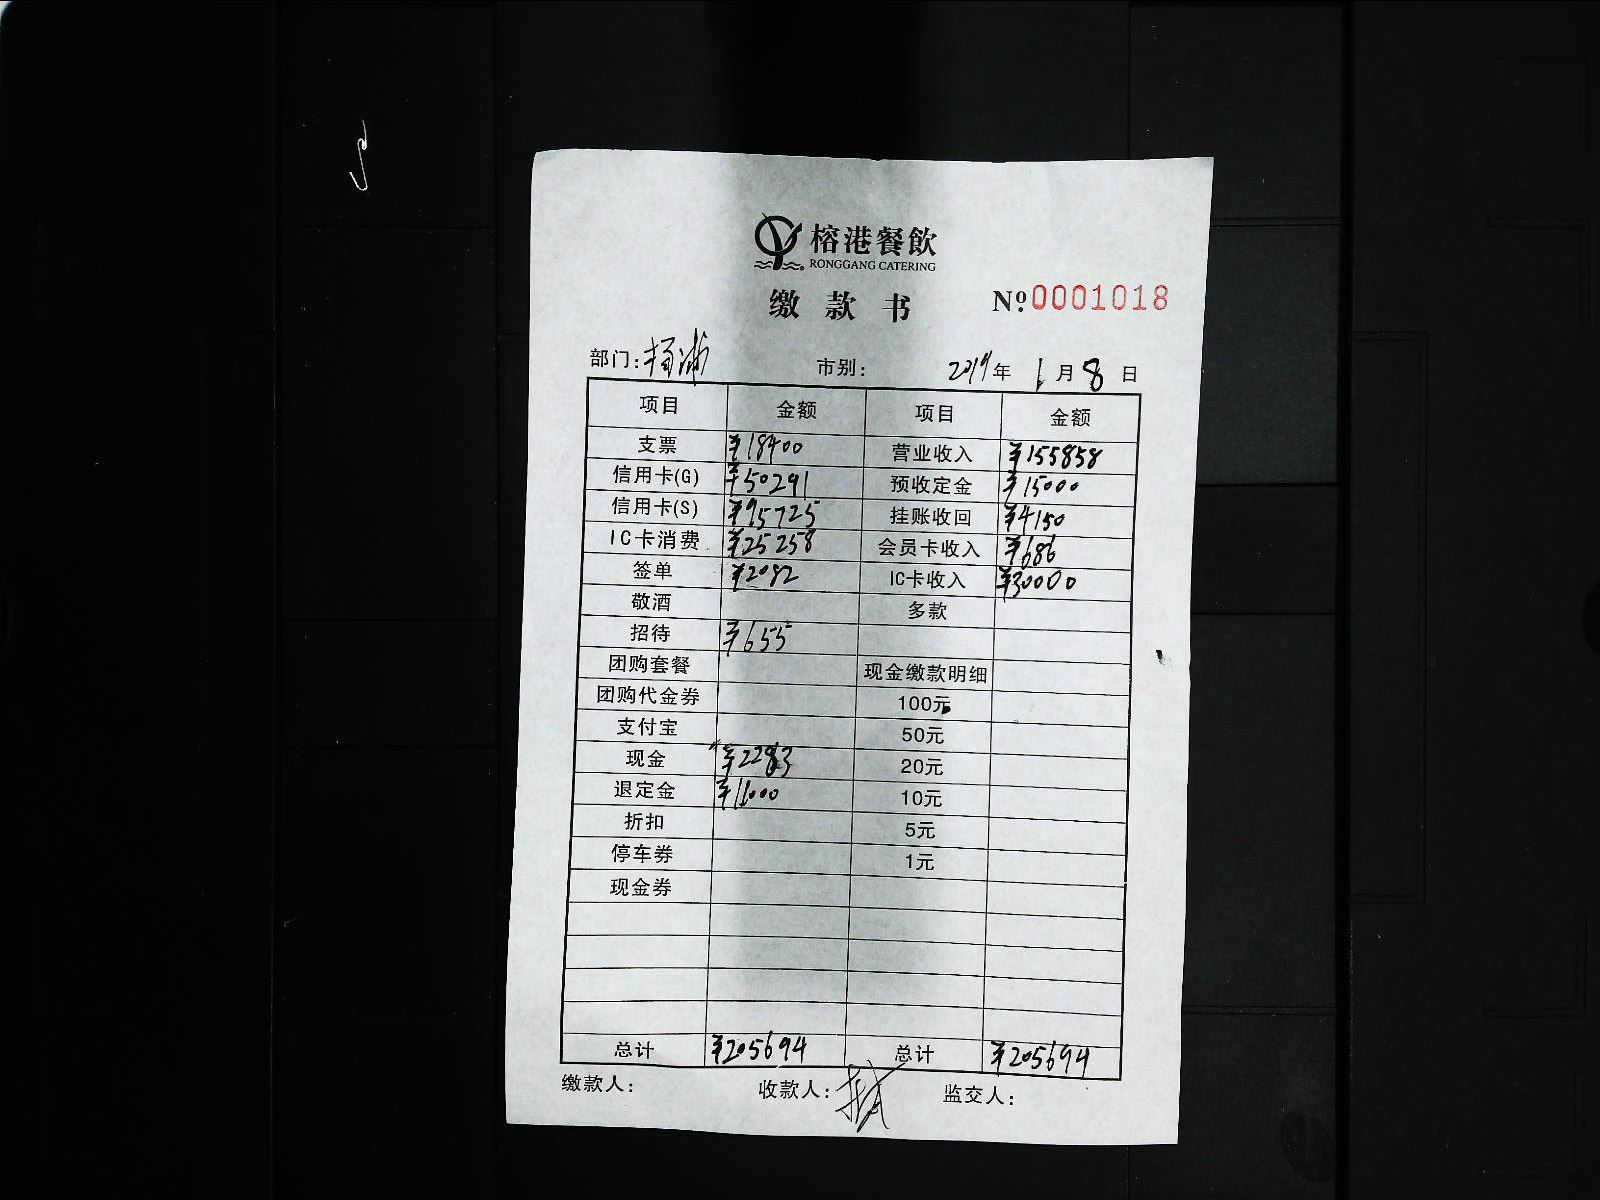 榕港餐飲
RONGGANG CATERING
缴款书 Nº 0001018
部门：杨浦 市别： 2019年 1月 8日
项目 金额 项目 金额
支票 ¥18400 营业收入 ¥155858
信用卡(G) ¥50291 预收定金 ¥15000
信用卡(S) ¥95725 挂账收回 ¥4150
IC卡消费 ¥25258 会员卡收入 ¥686
签单 ¥2082 IC卡收入 ¥30000
敬酒 多款
招待 ¥655
团购套餐 现金缴款明细
团购代金券 100元
支付宝 50元
现金 ¥2283 20元
退定金 ¥11000 10元
折扣 5元
停车券 1元
现金券
总计 ¥205694 总计 ¥205694
缴款人： 收款人： 监交人：